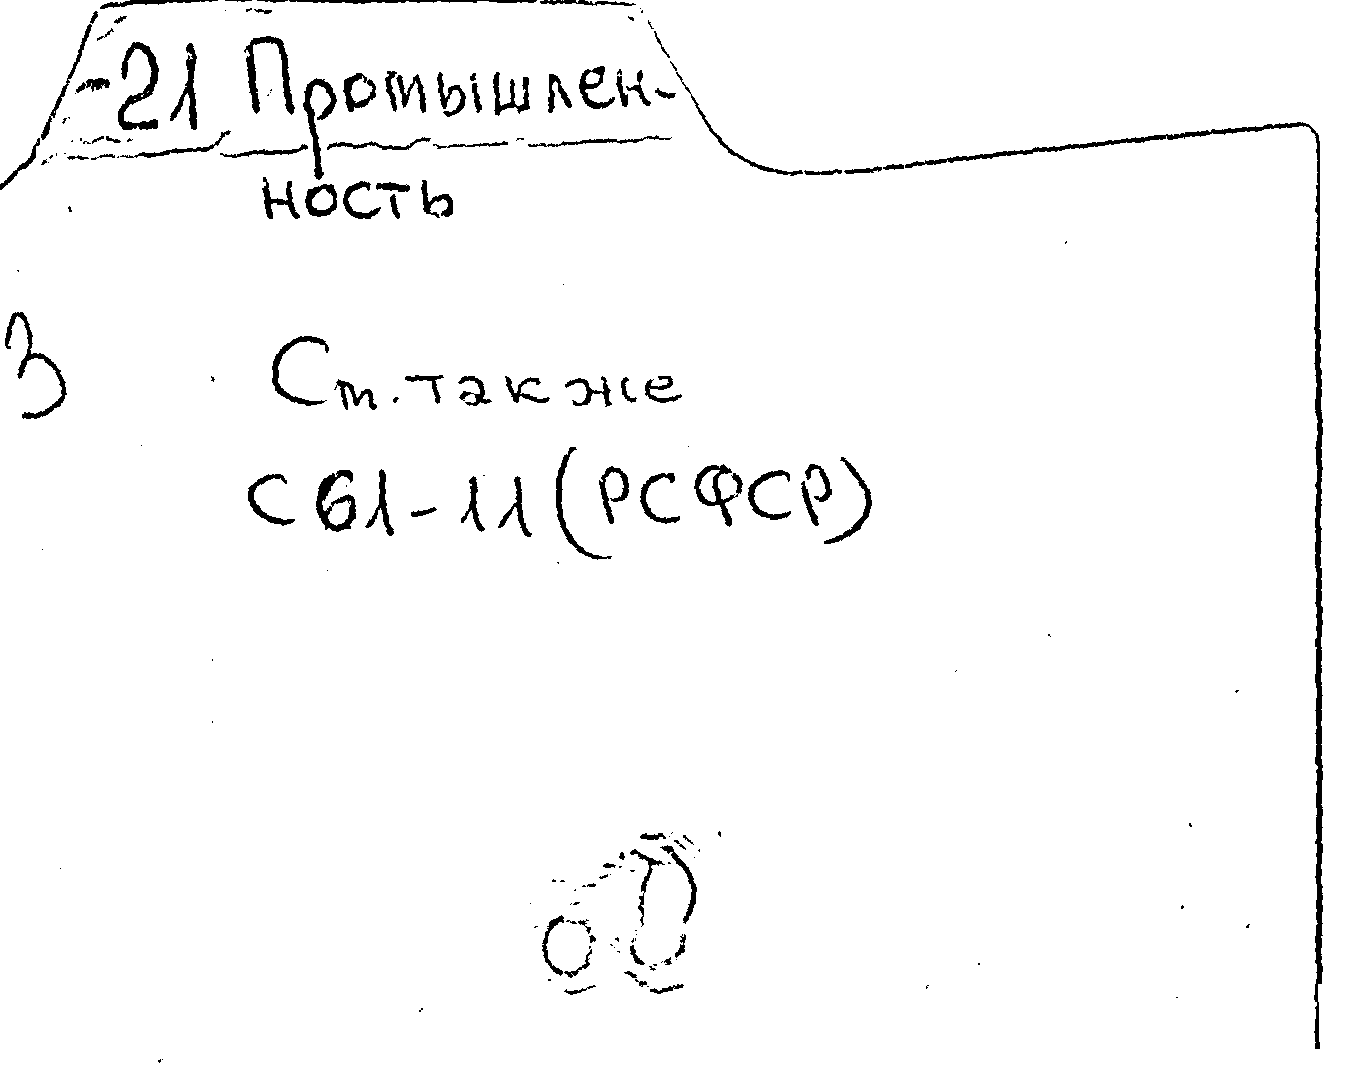 -21 Промышлен-
ность
3
См. также
С61-11 (РСФСР)